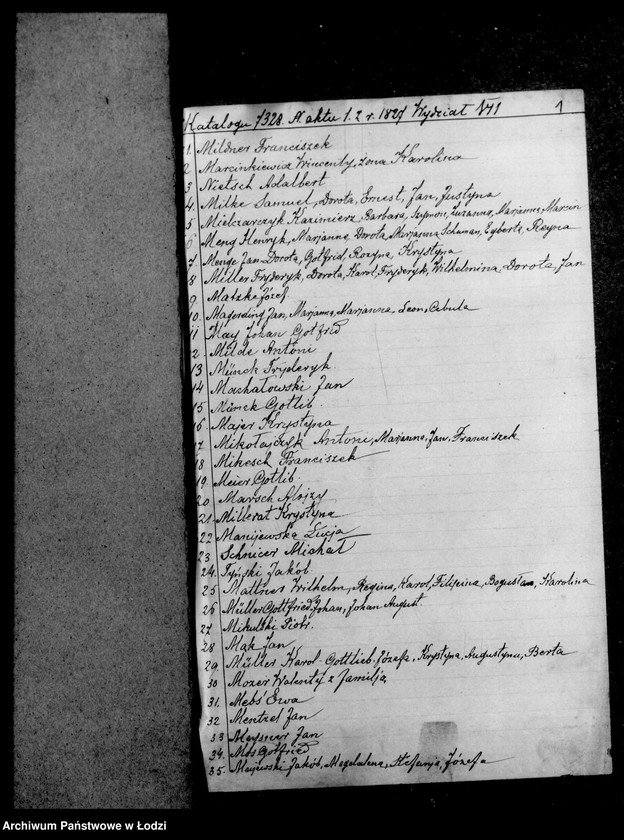 Katalogu 7328. N aktu 1.2 r. 1827 Wydział VII 1
1. Mildner Franciszek
2 Marcinkiewicz Wincenty, żona Karolina
3 Nietsch Adalbert
4. Milke Samuel, Dorota, Ernest, Jan, Justyna
5 Mielczarczyk Kazimierz, Barbara, Szymon, Zuzanna, Marjanna, Marcin
6 Meng Henryk, Marjanna, Dorota, Marjanna, Egberta, Rozyna
7 Menge Jan Dorota, Gotfrid, Rozyna, Krystyna
8 Miller Fryderyk, Dorota, Karol, Fryderyk, Wilhelmina, Dorota, Jan
9 Matzke Józef.
10. Jan, Marjanna, Marjanna, Leon, Cebula
11 May Johan Gotfrid
2 Milde Antoni
13 Münck Fryderyk.
14 Machatowski Jan
15 Gotlib.
16 Majer Krystyna
17 Mikołajczyk Antoni, Marjanna, Jan, Franciszek
18 Mikesch Franciszek
19. Meier Gotlib.
20 Marsch Alojzy
21. Millerat Krystyna
22 Manijewska Łucja
23 Schnicer Michał
24. Tyński Jakób.
25 Mattner Wilhelm, Regina, Karol, Filipina, Bogusław, Karolina
26 Müller Gottfried, Johan, Johan August.
27 Mikulski Piotr.
28 Mak Jan
29. Müller Karol-Gottlieb-Józefa, Krystyna, Augustyna, Berta
30 Mozer Walenty z familją
31. Mebś Ewa
32 Mentzel Jan
33 Meysner Jan
34. Mos Gotfried
35. Majewski Jakób, Magdalena, Stefanja, Józefa
Archiwum Państwowe w Łodzi